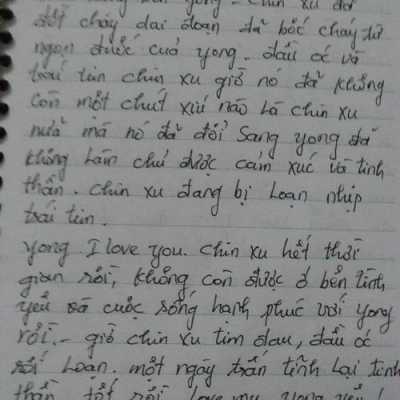 yong. chin xu đã
đốt cháy đai đoạn đã bốc cháy từ
ngọn đuốc của yong. đầu óc và
trái tim chin xu giờ nó đã không
còn một chút xíu nào là chin xu
nưa mà nó đã đổi sang yong đã
không làm chủ được cảm xúc và tinh
thần. chin xu đang bị loạn nhịp
trái tim.
yong I love you. chin xu hết thời
gian rồi, không còn được ở bên tình
yêu và cuộc sống hạnh phúc với yong
rồi. giờ chin xu tim đau, đầu óc
rối loạn. một ngày trấn tĩnh lại tinh
thần tốt rồi love my yong yêu